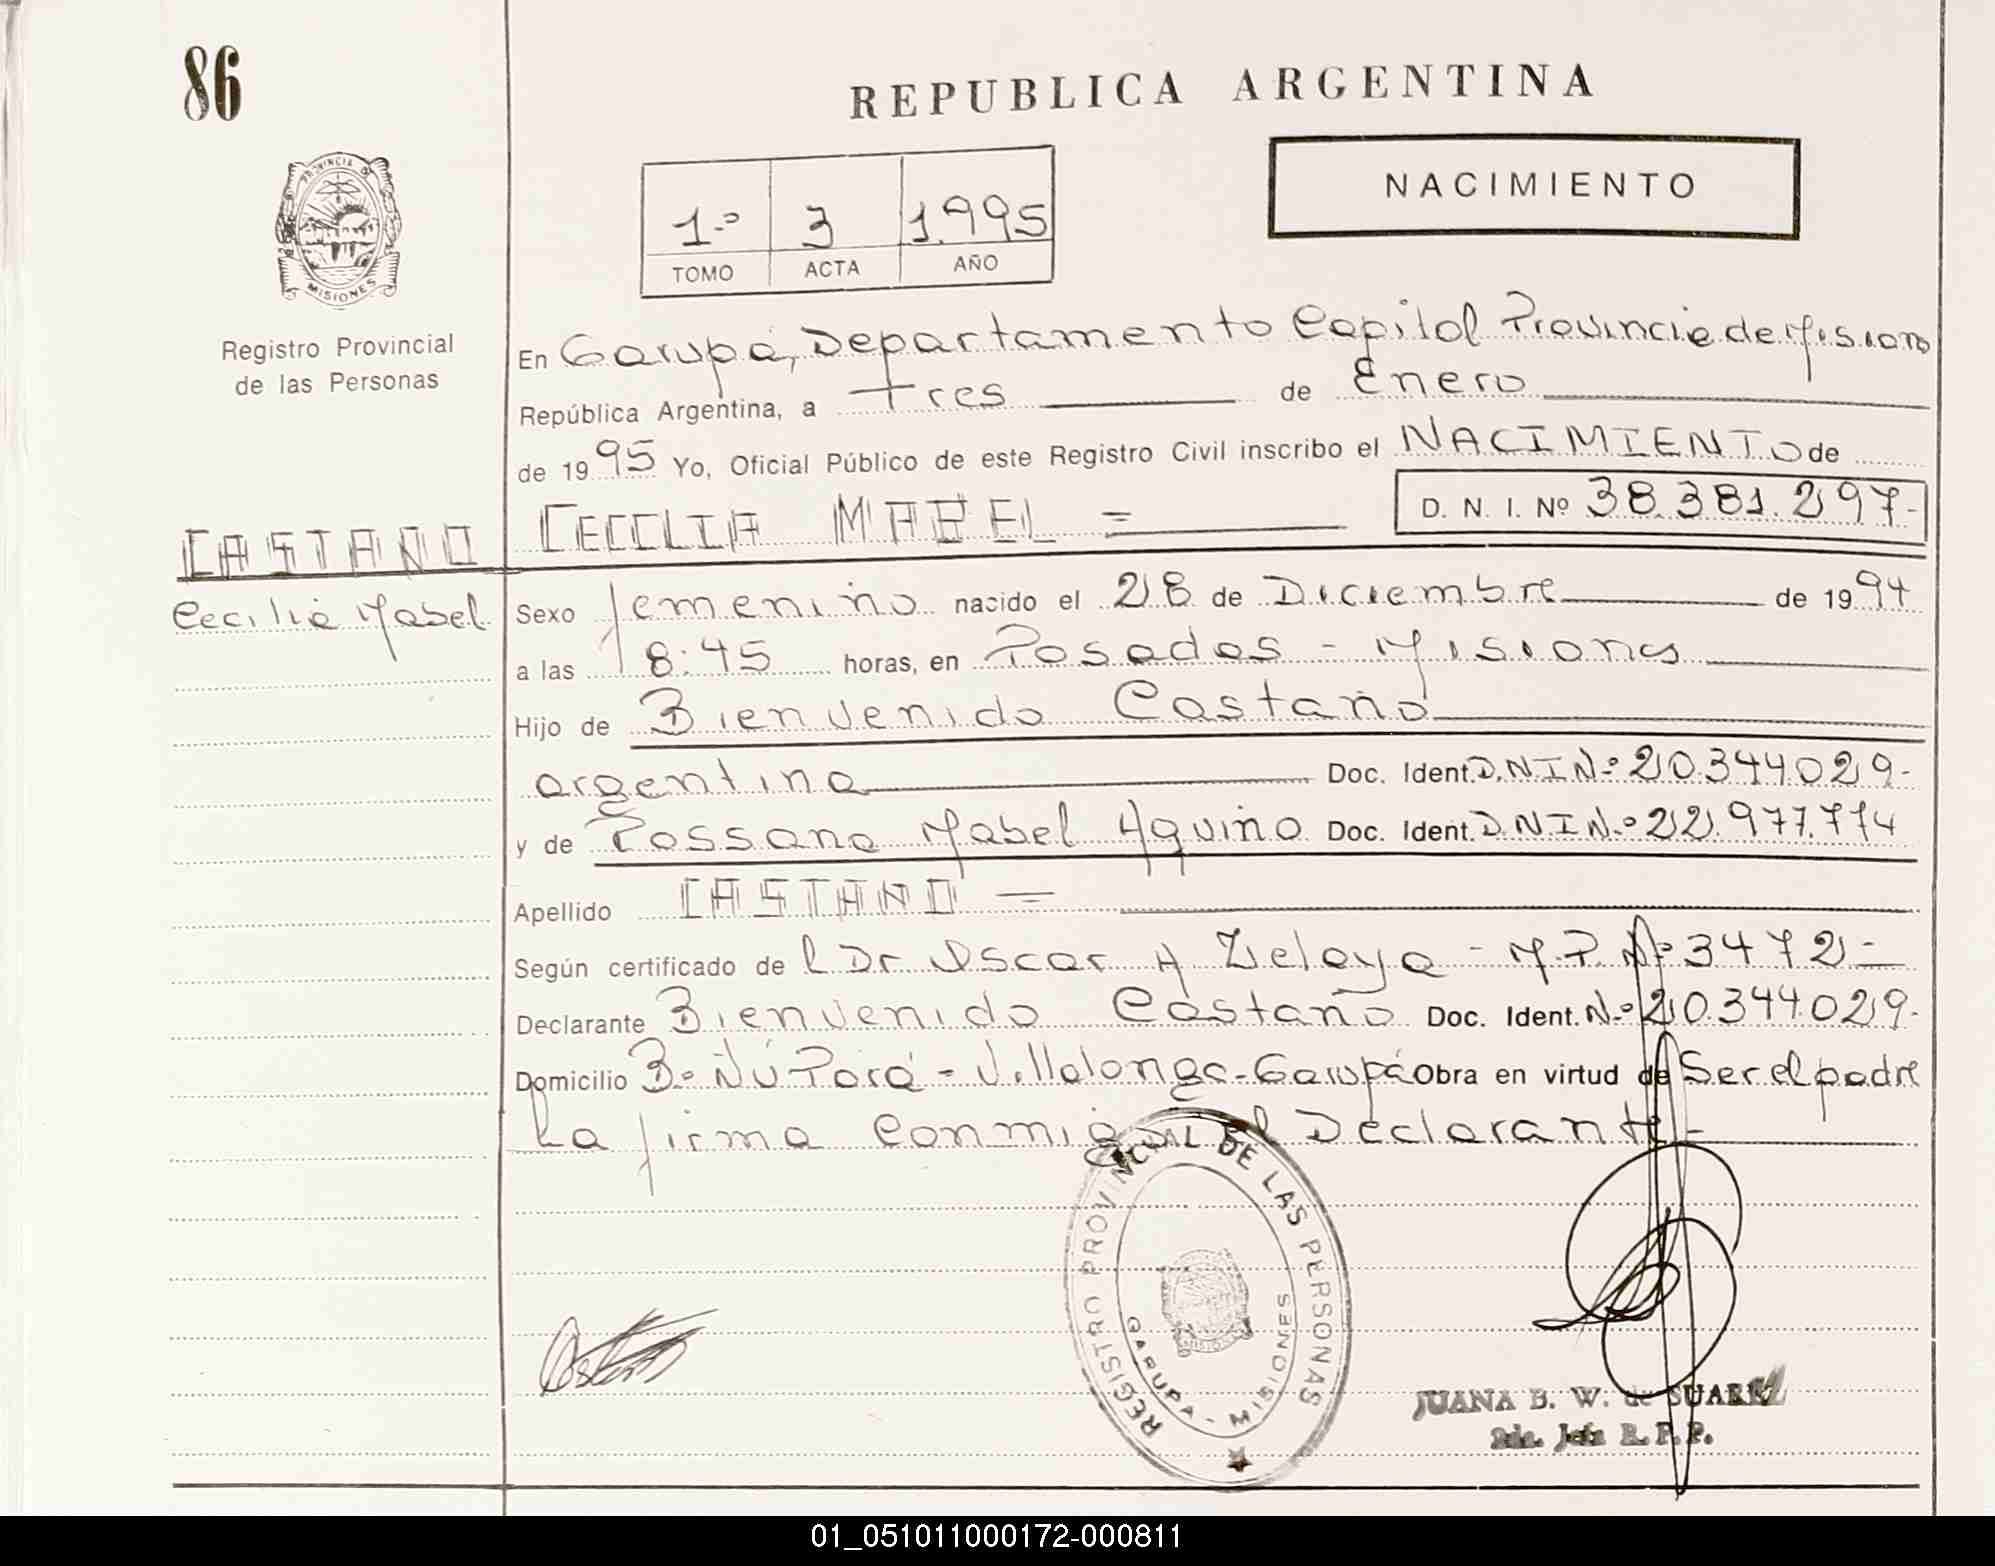 86
REPUBLICA ARGENTINA
NACIMIENTO
1.º 3 1.995
TOMO ACTA AÑO
PROVINCIA DE
MISIONES
Registro Provincial
de las Personas
En Garupá, Departamento Capital Provincia de Misiones
República Argentina, a tres de Enero
de 1995 Yo, Oficial Público de este Registro Civil inscribo el NACIMIENTO de
CECILIA MABEL = D. N. I. Nº 38.381.297-
CASTAÑO
Cecilia Mabel
Sexo femenino nacido el 28 de Diciembre de 1994
a las 18:45 horas, en Posadas - Misiones
Hijo de Bienvenido Castaño
argentina Doc. Ident. D.N.I N.º 20.344.029-
y de Rossana Mabel Aquino Doc. Ident. D.N.I N.º 22.977.774
Apellido CASTAÑO =
Según certificado de l Dr Oscar A Zelaya - M.P. Nº 3472=
Declarante Bienvenido Castaño Doc. Ident. N.º 20.344.029-
Domicilio Bº Ñú Porá - Villalonga - Garupá Obra en virtud de Ser el padre
La firma Conmigo el Declarante-
REGISTRO PROVINCIAL DE LAS PERSONAS
GARUPA - MISIONES
JUANA B. W. de SUAREZ
Jefa R. P. P.
01_051011000172-000811